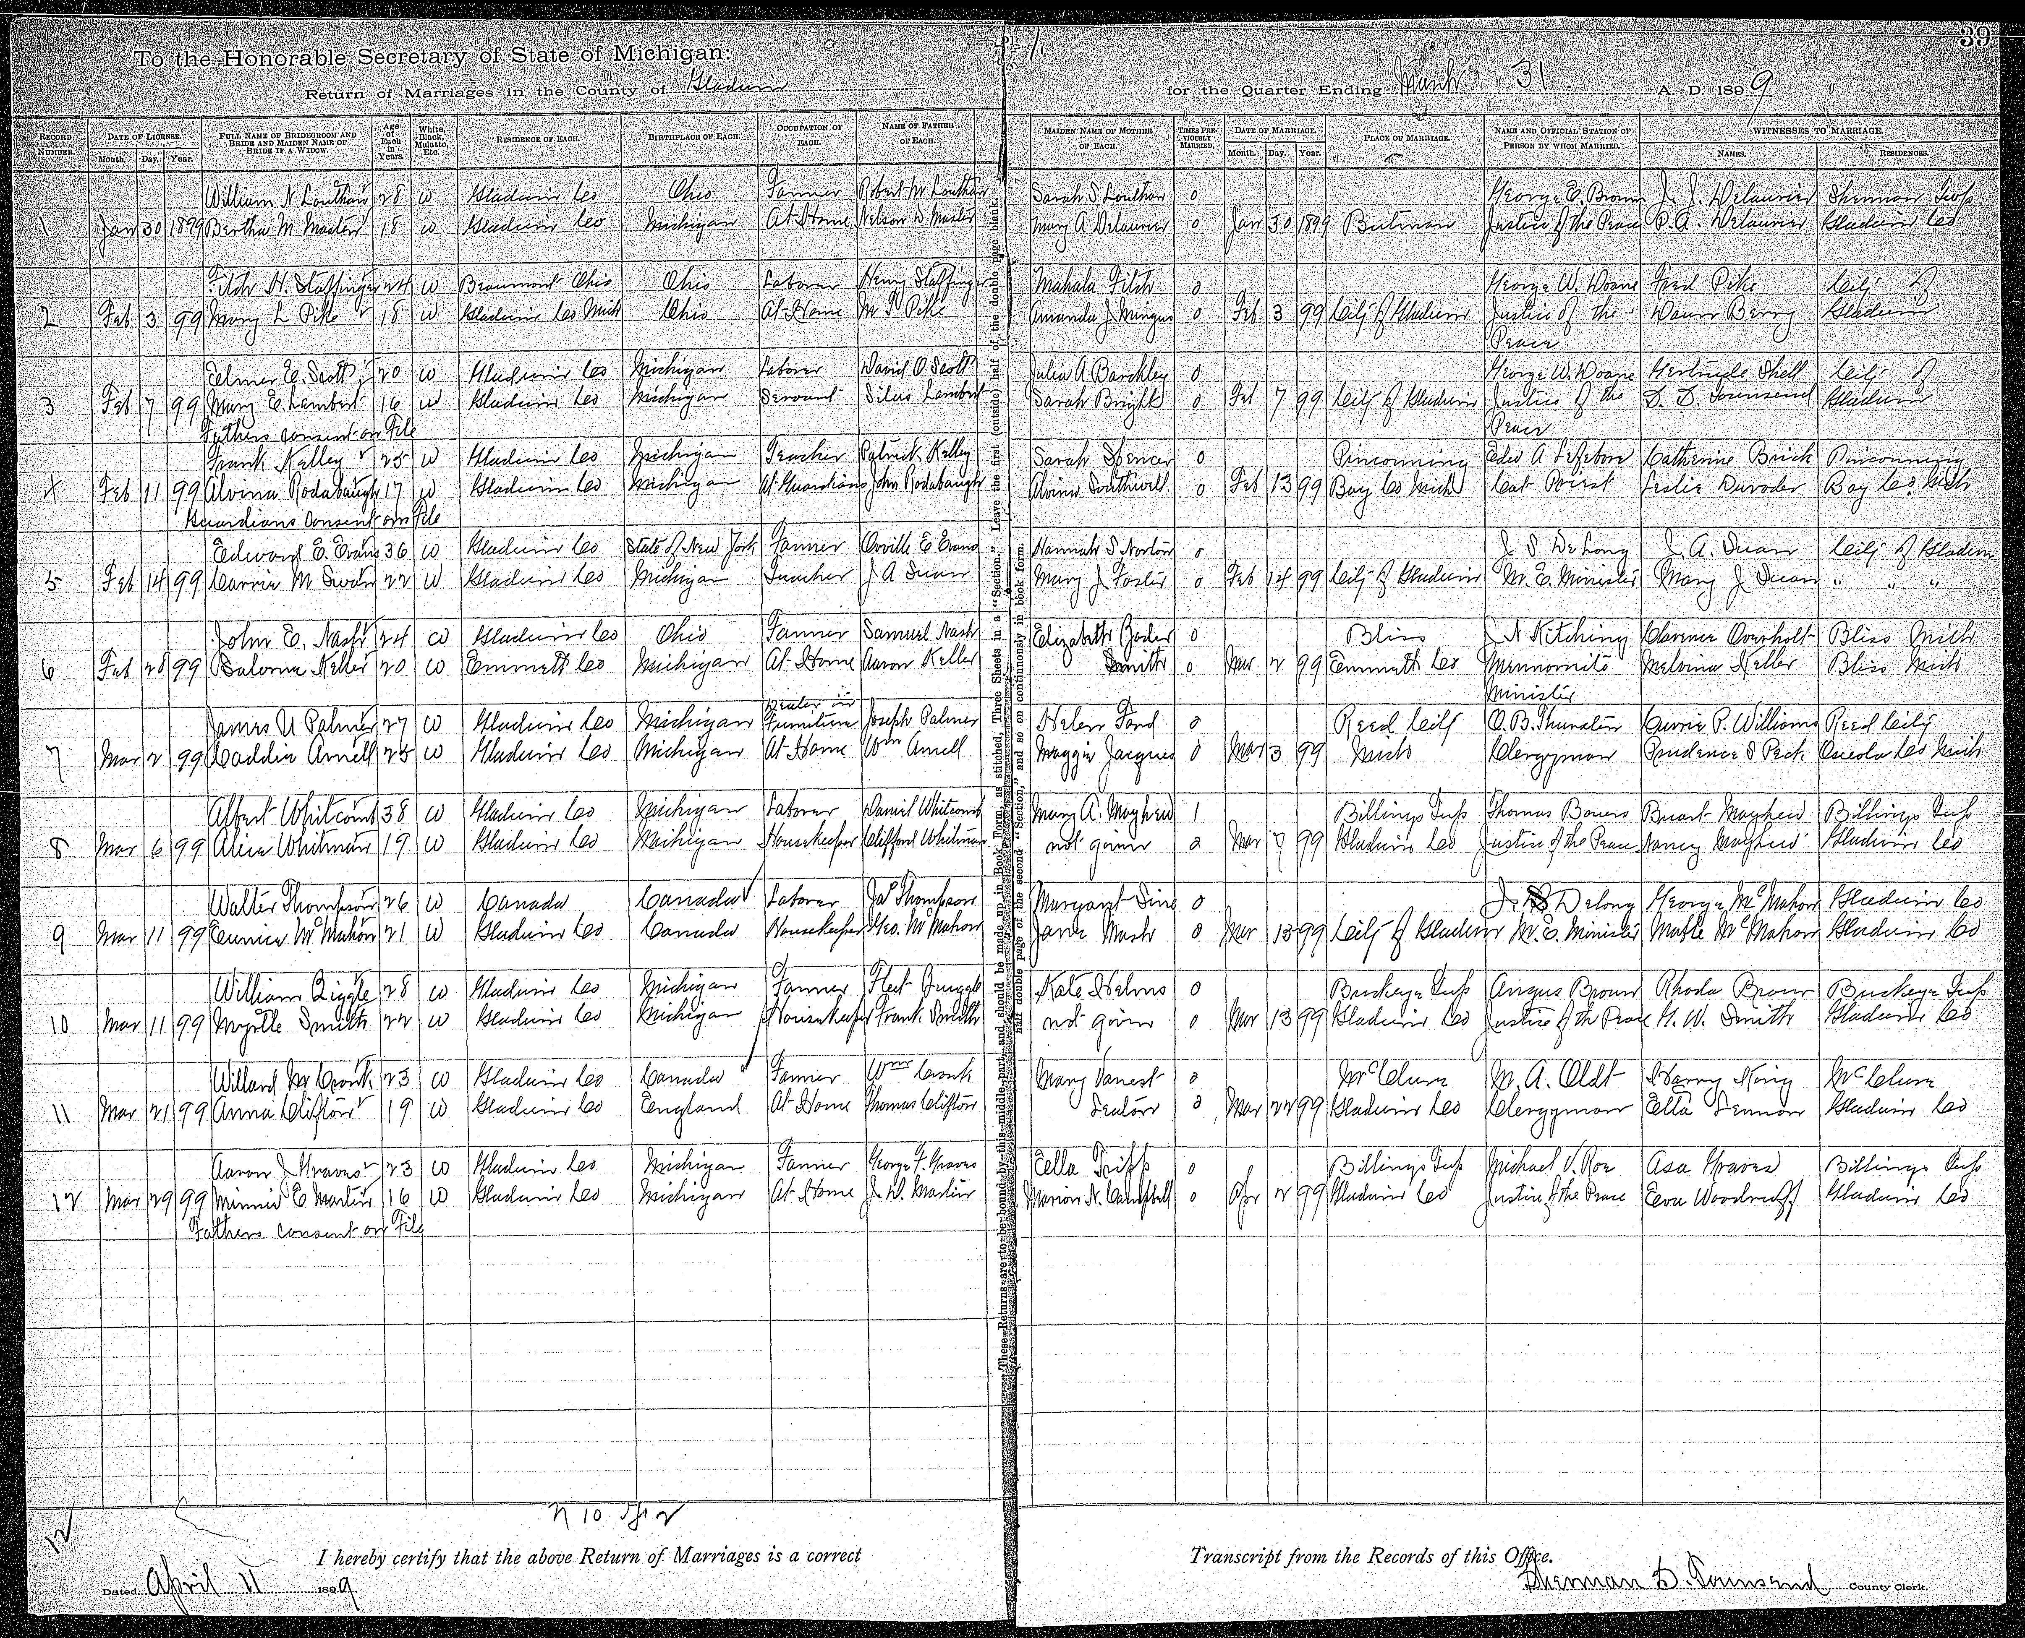 39
To the Honorable Secretary of State of Michigan.
Return of Marriages in the County of Gladwin for the Quarter Ending March 31 A. D. 1899
RECORD NUMBER. DATE OF LICENSE. Month. Day. Year. FULL NAME OF BRIDEGROOM AND BRIDE AND MAIDEN NAME OF BRIDE IF A WIDOW. Age of Each in Years. White, Black, Mulatto, Etc. RESIDENCE OF EACH. BIRTHPLACE OF EACH. OCCUPATION OF EACH. NAME OF FATHER OF EACH. MAIDEN NAME OF MOTHER OF EACH. TIMES PREVIOUSLY MARRIED. DATE OF MARRIAGE. Month. Day. Year. PLACE OF MARRIAGE. NAME AND OFFICIAL STATION OF PERSON BY WHOM MARRIED. WITNESSES TO MARRIAGE. NAMES. RESIDENCES.
William N Louthan 28 W Gladwin Co Ohio Farmer Robert M Louthan Sarah S Louthan 0 George E. Brown J. J. Delaurier Sherman Twp
1 Jan 30 1899 Bertha M Master 18 W Gladwin Co Michigan At Home Nelson D Master Mary A Delaurier 0 Jan 30 1899 Butman Justice of the Peace P. A. Delaurier Gladwin Co
Fitch H Staffinger 24 W Beaumont Ohio Ohio Laborer Henry Staffinger Mahala Fitch 0 George W. Doane Fred Pike City of
2 Feb 3 99 Mary L Pike 18 W Gladwin Co Mich Ohio At Home M S Pike Amanda J Mingus 0 Feb 3 99 City of Gladwin Justice of the Dawn Berry Gladwin
Peace
Elmer E. Scott 20 W Gladwin Co Michigan Laborer David O Scott Julia A Barckley 0 George W. Doane Gertrude Shell City of
3 Feb 7 99 Mary E Lambert 16 W Gladwin Co Michigan Servant Silas Lambert Sarah Bright 0 Feb 7 99 City of Gladwin Justice of the S. D Townsend Gladwin
Fathers consent on File Peace
Frank Kelley 25 W Gladwin Co Michigan Teacher Patrick Kelley Sarah Spencer 0 Pinconning Edw A Lefebvre Catherine Brick Pinconning
4 Feb 11 99 Alvina Rodabaugh 17 W Gladwin Co Michigan At Guardians John Rodabaugh Alvina Southwell 0 Feb 13 99 Bay Co Mich Cat Priest Leslie Bay Co Mich
Guardians Consent on File
Edward E. Evans 36 W Gladwin Co State of New York Farmer Orville E Evans Hannah S Norton 0 J. S DeLong J. A. Swan City of Gladwin
5 Feb 14 99 Carrie M Swan 22 W Gladwin Co Michigan Teacher J A Swan Mary J Foster 0 Feb 14 99 City of Gladwin M. E. Minister Mary J Swan " " "
John E. Nash 24 W Gladwin Co Ohio Farmer Samuel Nash Elizabeth Yoder 0 Bliss J N Kitching Clarence Overholt Bliss Mich
6 Feb 28 99 Saloma Keller 20 W Emmett Co Michigan At Home Aaron Keller Smith 0 Mar 2 99 Emmett Co Mennonite Melvina Keller Bliss Mich
Dealer in Minister
James U Palmer 27 W Gladwin Co Michigan Furniture Joseph Palmer Helen Ford 0 Reed City O. B. Thurston Carrie P. Williams Reed City
7 Mar 2 99 Caddie Arnell 25 W Gladwin Co Michigan At Home Wm Arnell Maggie Jacques 0 Mar 3 99 Mich Clergyman Prudence S Peck Osceola Co Mich
Albert Whitcomb 38 W Gladwin Co Michigan Laborer Daniel Whitcomb Mary A. Mayhew 1 Billings Twp Thomas Bowers Burt Mayhew Billings Twp
8 Mar 6 99 Alice Whitman 19 W Gladwin Co Michigan Housekeeper Clifford Whitman not given 0 Mar 7 99 Gladwin Co Justice of the Peace Nancy Mayhew Gladwin Co
Walter Thompson 26 W Canada Canada Laborer Jas Thompson Margaret Sine 0 J. S Delong George McMahon Gladwin Co
9 Mar 11 99 Eunice McMahon 21 W Gladwin Co Canada Housekeeper Geo. McMahon Jane Mash 0 Mar 13 99 City of Gladwin M. E. Minister Mable McMahon Gladwin Co
William Ziggle 28 W Gladwin Co Michigan Farmer Kate Helms 0 Buckeye Twp Angus Brown Rhoda Brown Buckeye Twp
10 Mar 11 99 Myrtle Smith 22 W Gladwin Co Michigan Housekeeper Frank Smith not given 0 Mar 13 99 Gladwin Co Justice of the Peace H. W. Smith Gladwin Co
Willard M Cronk 23 W Gladwin Co Canada Farmer Wm Cronk Mary Vanest 0 McClure M. A. Oldt Harry King McClure
11 Mar 21 99 Anna Clifton 19 W Gladwin Co England At Home Thomas Clifton Seaton 0 Mar 22 99 Gladwin Co Clergyman Ella Gladwin Co
Aaron J Graves 23 W Gladwin Co Michigan Farmer George F. Graves Cella Tripp 0 Billings Twp Michael V. Roe Asa Graves Billings Twp
12 Mar 29 99 Minnie E Martin 16 W Gladwin Co Michigan At Home J. D. Martin Marion N. Campbell 0 Apr 2 99 Gladwin Co Justice of the Peace Eva Woodruff Gladwin Co
Fathers consent on File
These Returns are to be bound by this middle part, and should be made up in Book Form, as stitched, Three Sheets in a "Section." Leave the first (outside) half of the double page blank.
and double page of the second "Section," and so on continuously in book form.
12
I hereby certify that the above Return of Marriages is a correct Transcript from the Records of this Office.
Dated April 11 1899 Sherman D. Townsend County Clerk.